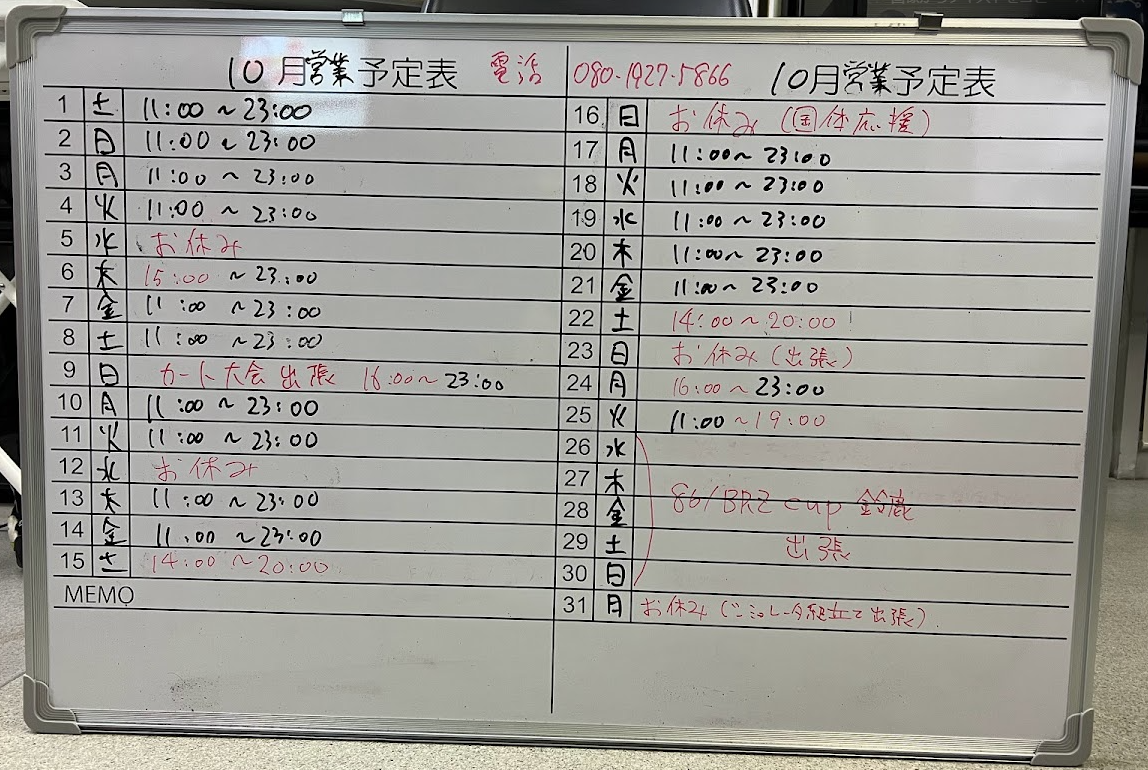 10月営業予定表 電話
1 土 11:00~23:00
2 日 11:00~23:00
3 月 11:00~23:00
4 火 11:00~23:00
5 水 お休み
6 木 15:00~23:00
7 金 11:00~23:00
8 土 11:00~23:00
9 日 カート大会出張 16:00~23:00
10 月 11:00~23:00
11 火 11:00~23:00
12 水 お休み
13 木 11:00~23:00
14 金 11:00~23:00
15 土 14:00~20:00
MEMO
080-1927-5866 10月営業予定表
16 日 お休み(国体応援)
17 月 11:00~23:00
18 火 11:00~23:00
19 水 11:00~23:00
20 木 11:00~23:00
21 金 11:00~23:00
22 土 14:00~20:00
23 日 お休み(出張)
24 月 16:00~23:00
25 火 11:00~19:00
26 水
27 木
28 金 86/BRZ cup 鈴鹿
29 土 出張
30 日
31 月 お休み(シミュレータ組立て出張)